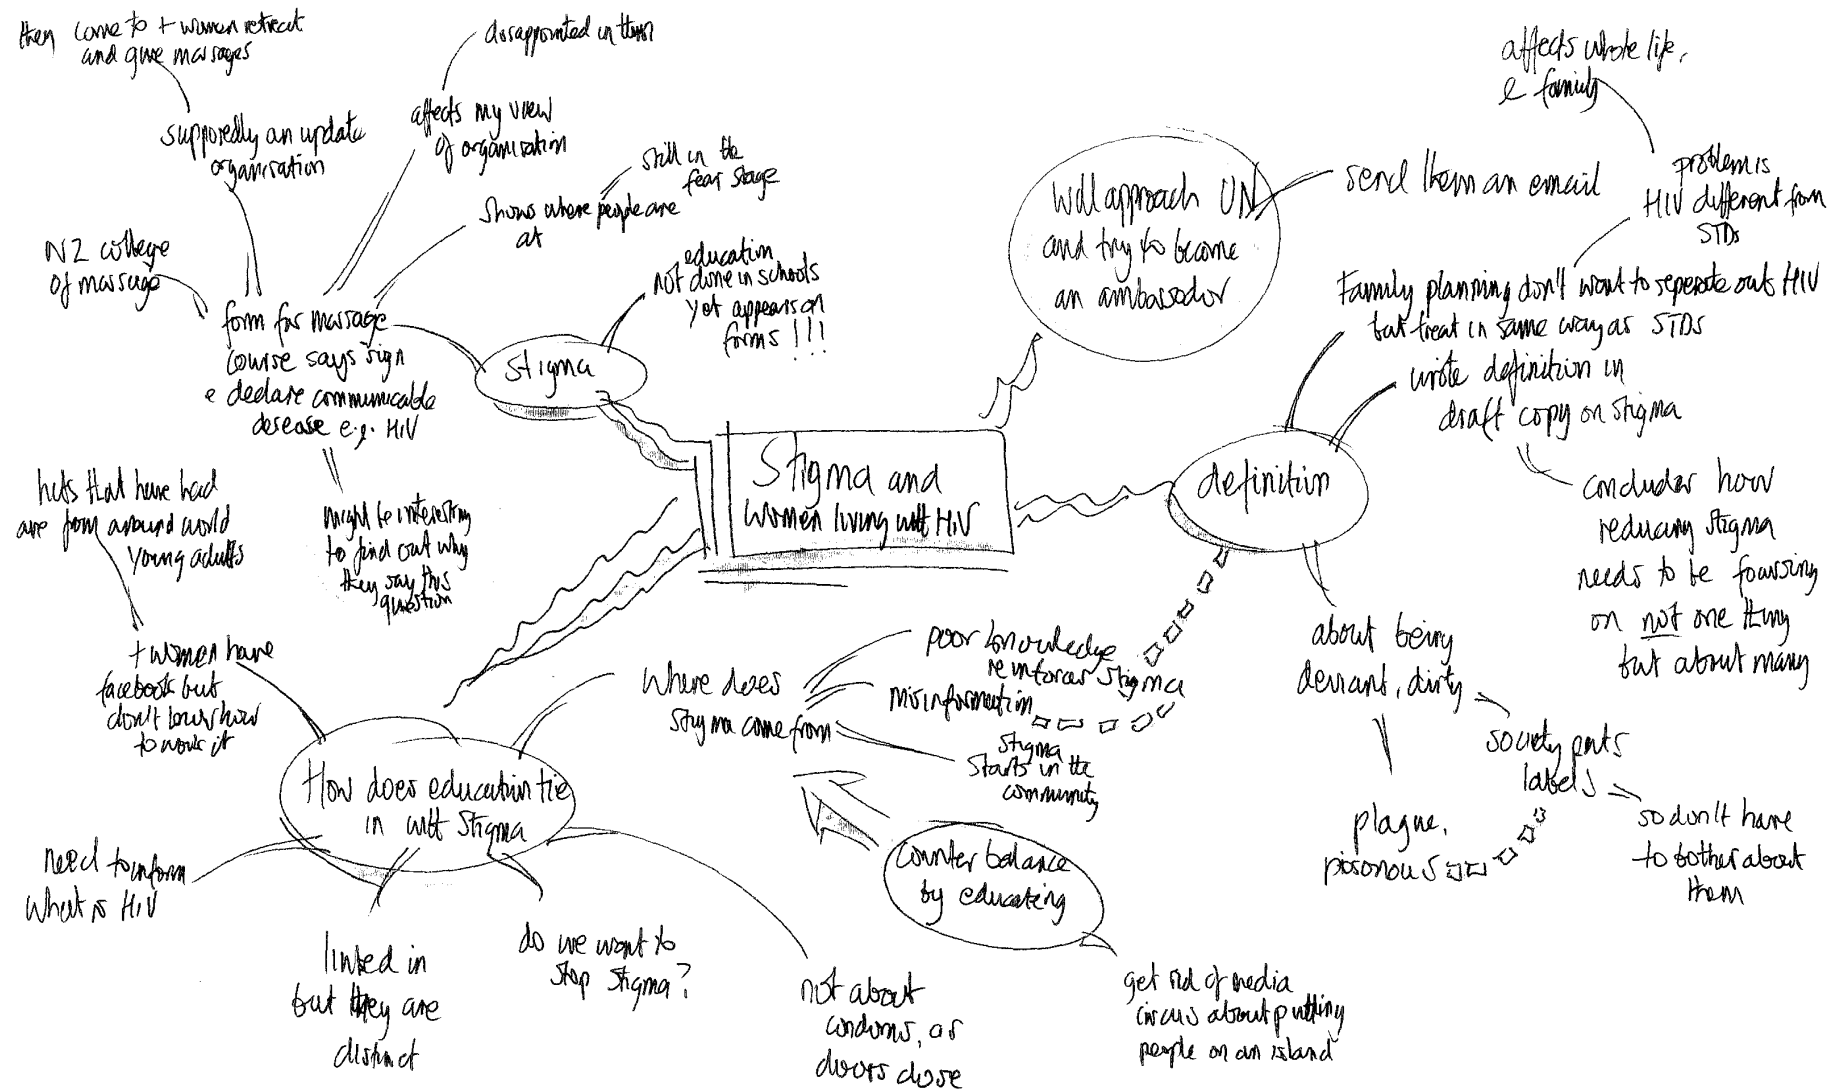 then come to + women retreat
and give massages
supposedly an update
organisation
disappointed in them
affects my view
of organisation
still in the
fear stage
shows where people are
at
NZ college
of massage
form for massage
course says sign
e declare communicable
desease e.g. HIV
might be interesting
to find out why
they say this
question
stigma
education
not done in schools
yet appears on
forms !!!
Stigma and
women living with HIV
Will approach UN
and try to become
an ambassador
send them an email
affects whole life,
e family
problem is
HIV different from
STDs
Family planning don't want to seperate out HIV
but treat in same way as STDs
wrote definition in
draft copy on stigma
concludes how
reducing stigma
needs to be focussing
on not one thing
but about many
definition
about being
deviant, dirty
society puts
labels
so don't have
to bother about
them
plague,
poisonous
hets that have had
are from around world
young adults
+ women have
facebook but
don't know how
to work it
How does education tie
in with stigma
need to inform
what is HIV
linked in
but they are
distinct
do we want to
stop stigma?
not about
condoms, as
doors close
where does
stigma come from
poor knowledge
reinforces stigma
misinformation
stigma
starts in the
community
Counter balance
by educating
get rid of media
circus about putting
people on an island